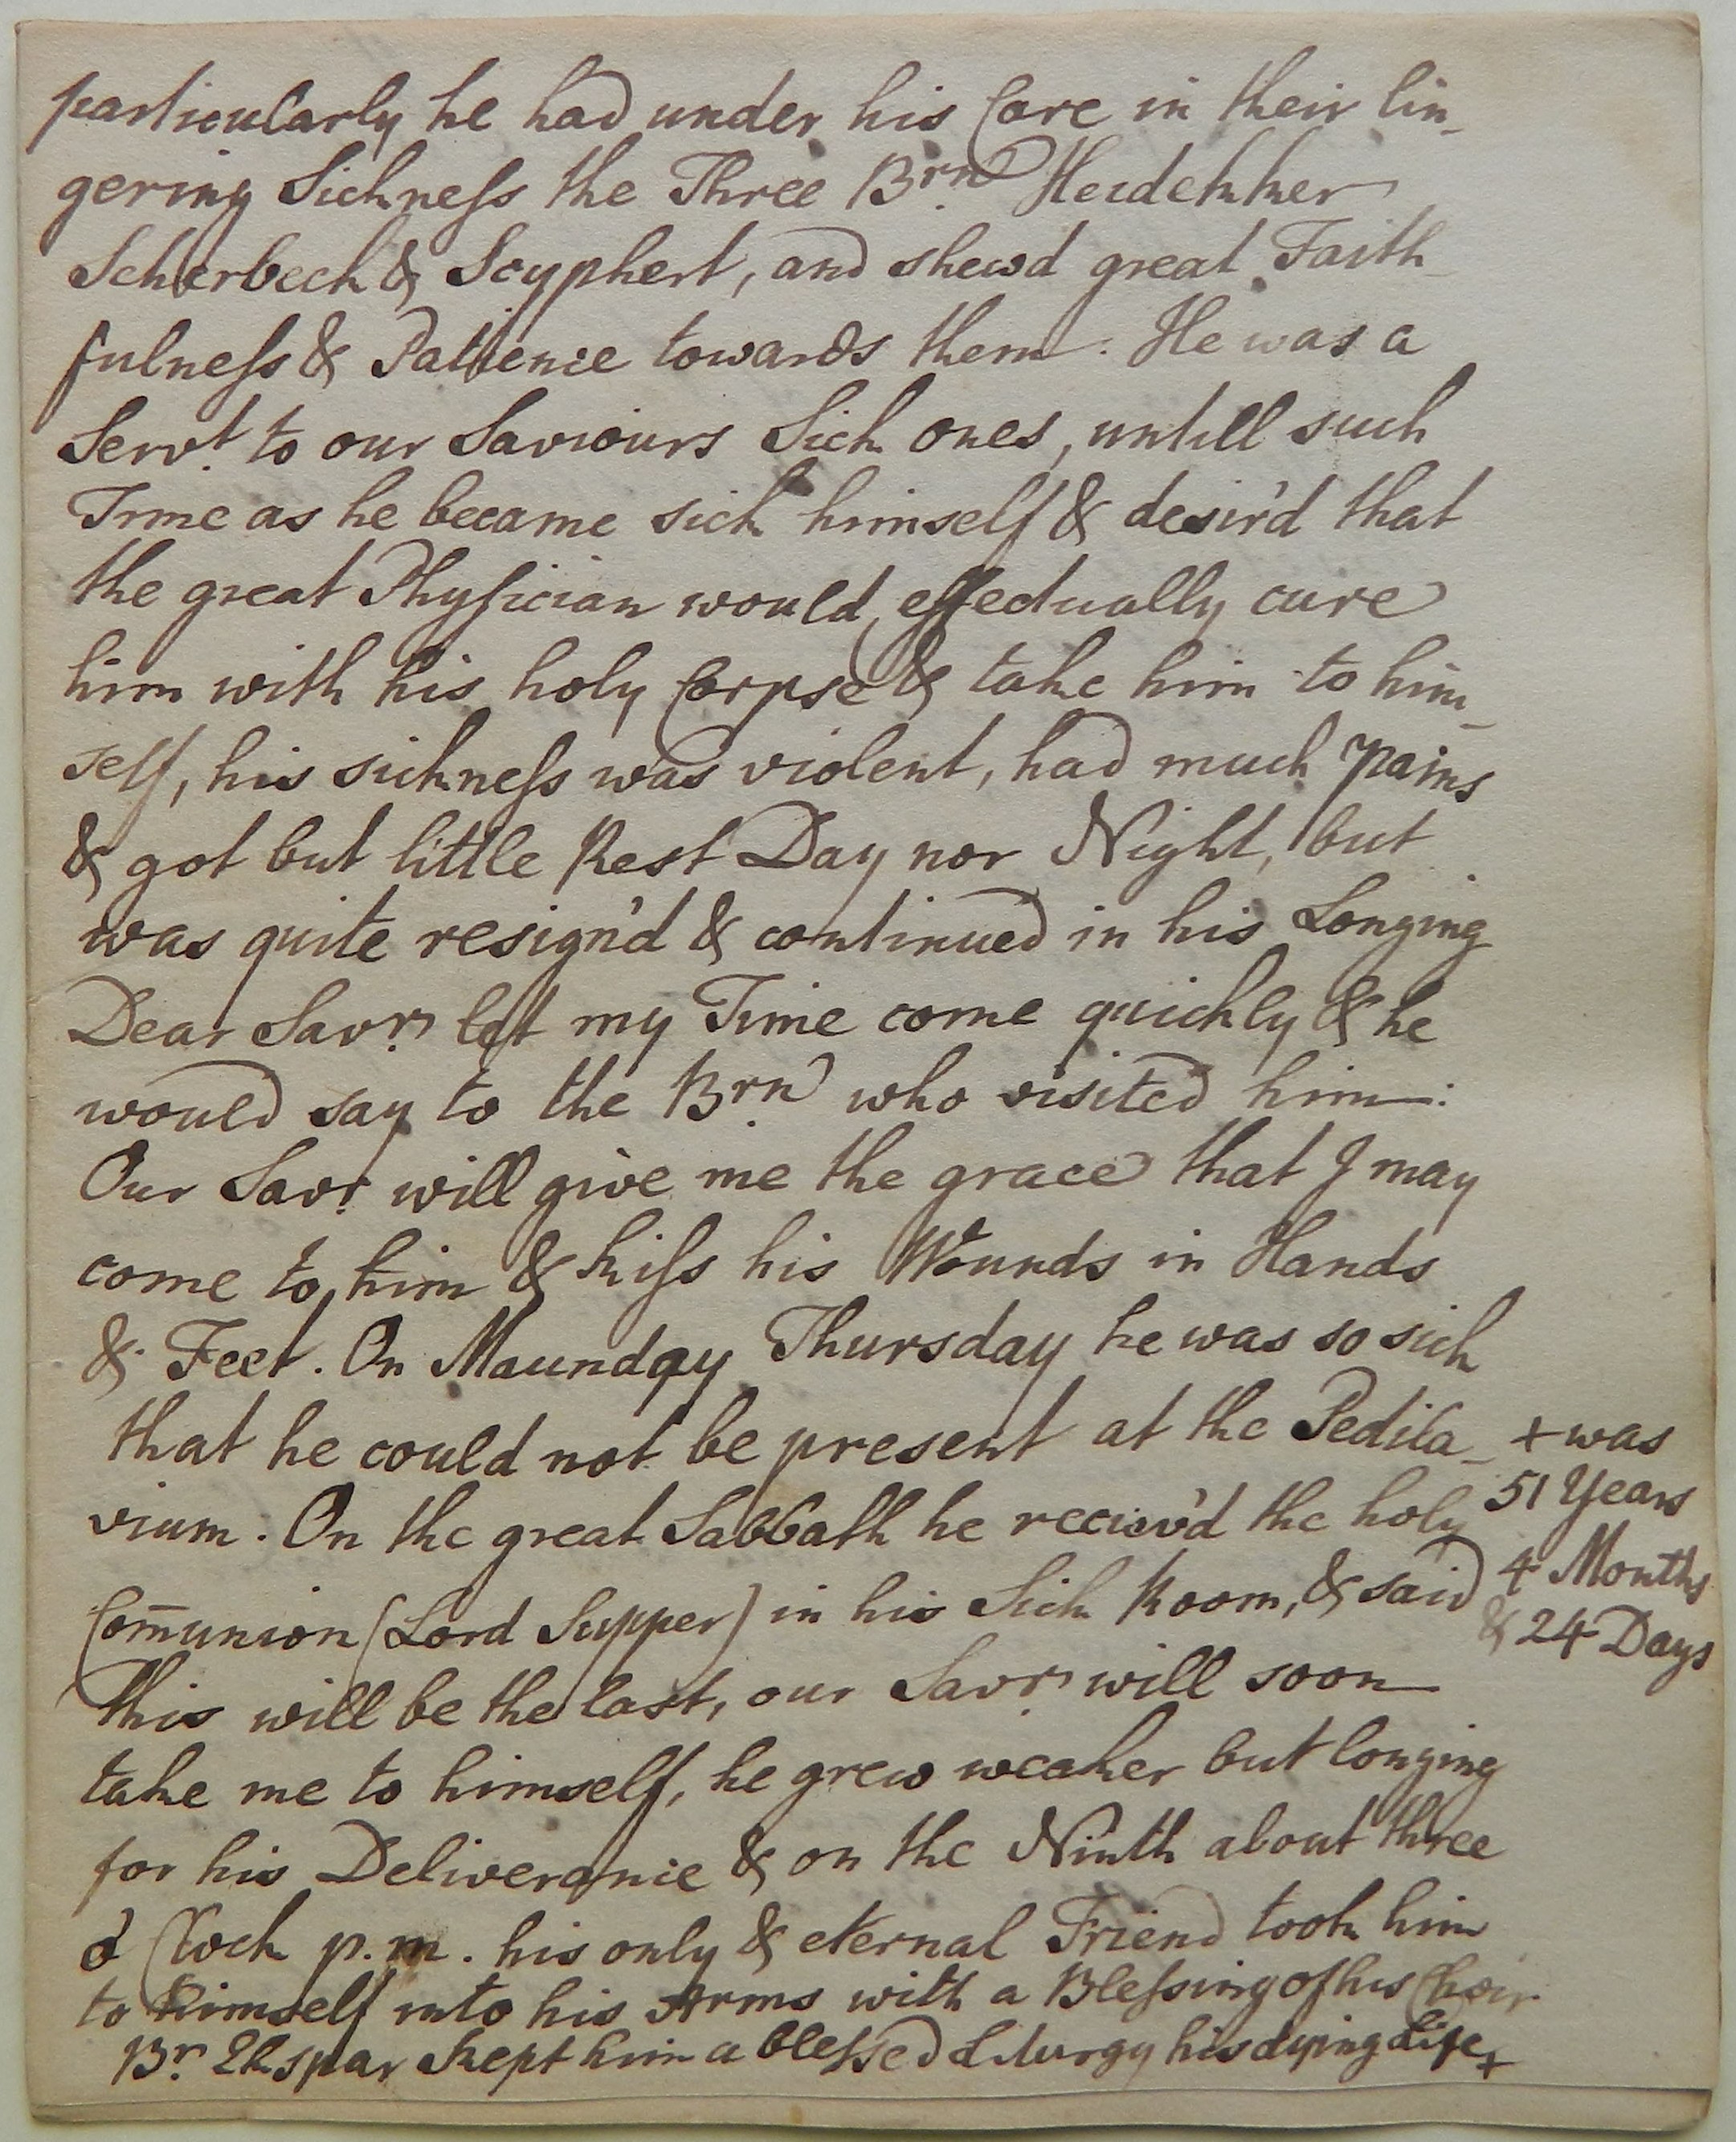 particularly he had under his Care in their lin-
gering Sickness the Three Brn. Heidekker
Scherbeck & Seyphert, and shewd great Faith
fulness & Patience towards them. He was a
Servt. to our Saviours Sick ones, untill such
Time as he became sick himself & desir'd that
the great Physician would effectually cure
him with his holy Corpse & take him to him-
self, his sickness was violent, had much pains
& got but little Rest Day nor Night, but
was quite resign'd & continued in his Longing
Dear Savr. let my Time come quickly & he
would say to the Brn. who visited him:
Our Savr. will give me the grace that I may
come to him & kiss his Wounds in Hands
& Feet. On Maunday Thursday he was so sick
that he could not be present at the Pedila-
vium. On the great Sabbath he reciev'd the holy
Com̅union (Lord Supper) in his Sick Room, & said
this will be the last, our Savr. will soon
take me to himself, he grew weaker but longing
for his Deliverance & on the Ninth about three
o' Clock p.m. his only & eternal Friend took him
to himself into his Arms with a Blessing of his Choir
Br. kept him a blessed Liturgy his dying Life +
+ was
51 Years
4 Months
& 24 Days